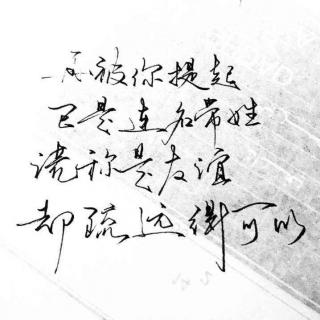 一再被你提起
已是连名带姓
谎称是友谊
却疏远得可以